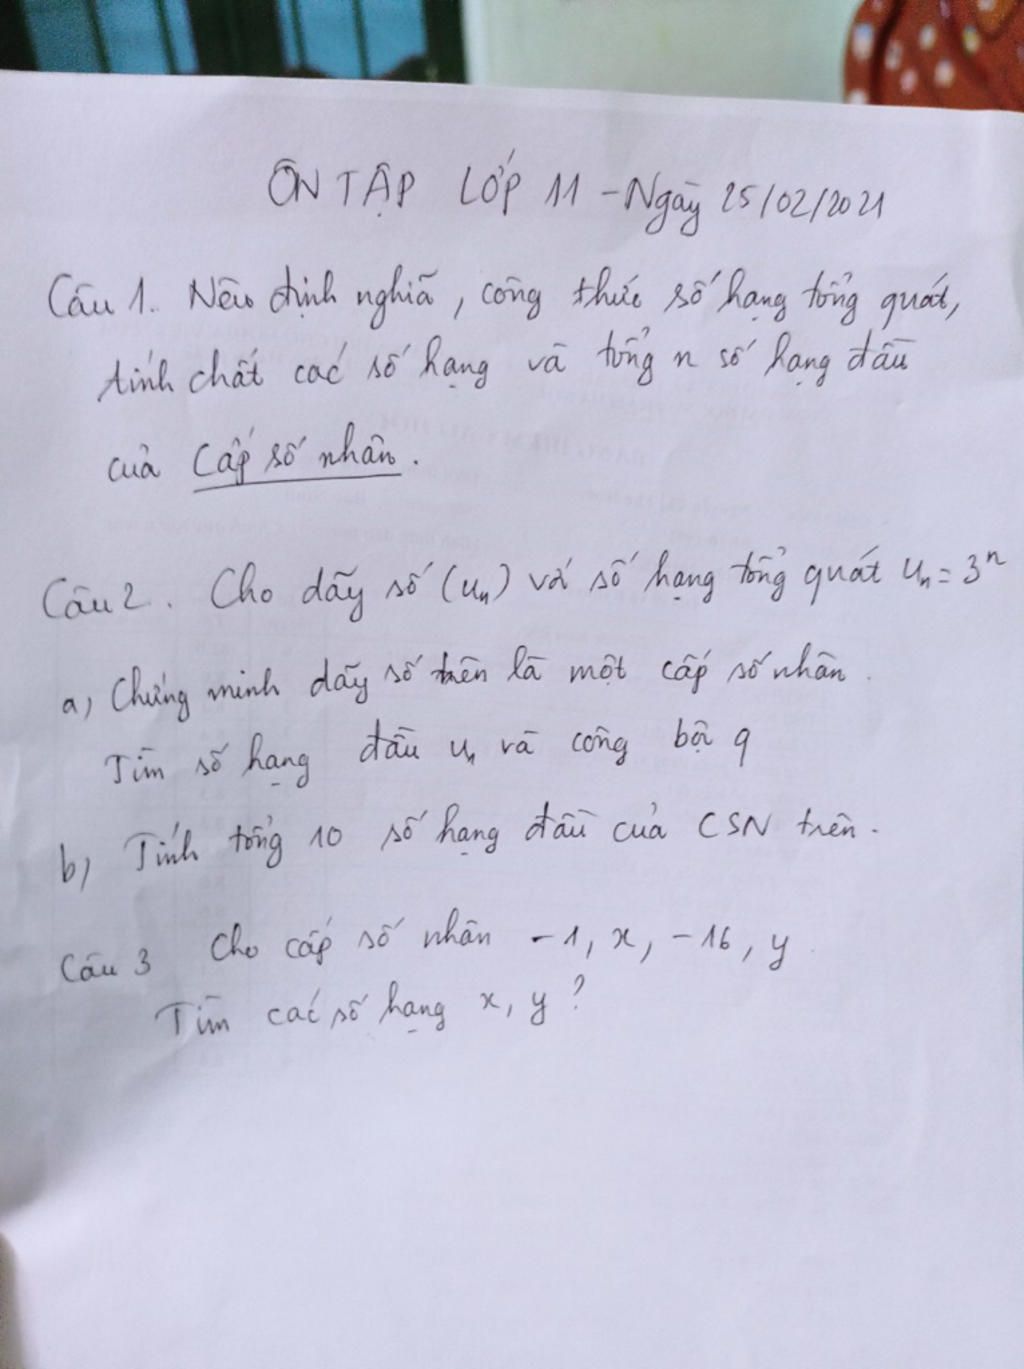 ÔN TẬP LỚP 11 - Ngày 25/02/2021
Câu 1. Nêu định nghĩa, công thức số hạng tổng quát,
tính chất các số hạng và tổng n số hạng đầu
của Cấp số nhân.
Câu 2. Cho dãy số (uₙ) với số hạng tổng quát uₙ = 3ⁿ
a, Chứng minh dãy số trên là một cấp số nhân.
Tìm số hạng đầu u₁ và công bội q
b, Tính tổng 10 số hạng đầu của CSN trên.
Câu 3 Cho cấp số nhân -1, x, -16, y.
Tìm các số hạng x, y?